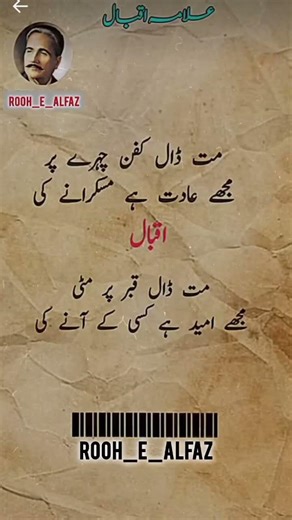 علامہ اقبال
ROOH_E_ALFAZ
مت ڈال کفن چہرے پر
مجھے عادت ہے مسکرانے کی
اقبال
مت ڈال قبر پر مٹی
مجھے امید ہے کسی کے آنے کی
ROOH_E_ALFAZ